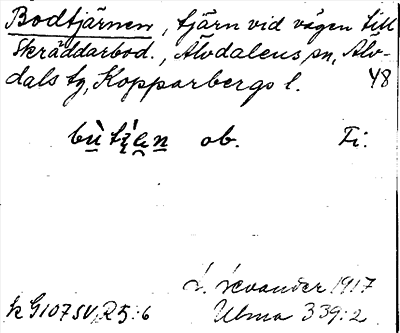 Bodtjärnen, tjärn vid vägen till
Skräddarbod., Älvdalens sn, Älv-
dals tg, Kopparbergs l. 48
ob. Fi.
L. Levander 1917
k G107SV, R5:6 Ulma 339:2